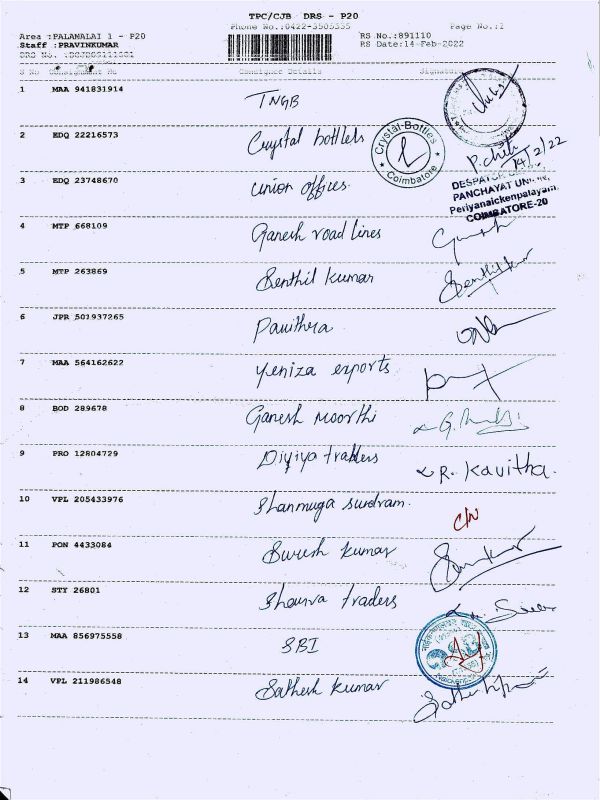 TPC/CJB DRS - P20
Phone No.:0422-3505335 Page No.:1
Area :PALAMALAI 1 - P20 RS No.:891110
Staff :PRAVINKUMAR RS Date:14-Feb-2022
S No Consignment No Consignee Details Signature
1 MAA 941831914 TNGB
2 EDQ 22216573 Crystal bottlers
Crystal-Bottles
Coimbatore
P.chit
14/2/22
3 EDQ 23748670 union offices.
DESPATCH
PANCHAYAT UNION,
Periyanaickenpalayam,
COIMBATORE-20
4 MTP 668109 Ganesh road lines
5 MTP 263869 Senthil kumar Senthilkur
6 JPR 501937265 Pavithra
7 MAA 564162622 yeniza exports
8 BOD 289678 Ganesh moorthi
9 PRO 12804729 Diyiya traders R. Kavitha.
10 VPL 205433976 Shanmuga sundram. C/N
11 PON 4433084 Suresh kumar
12 STY 26801 traders
13 MAA 856975558 SBI
14 VPL 211986548 Sathesh kumar